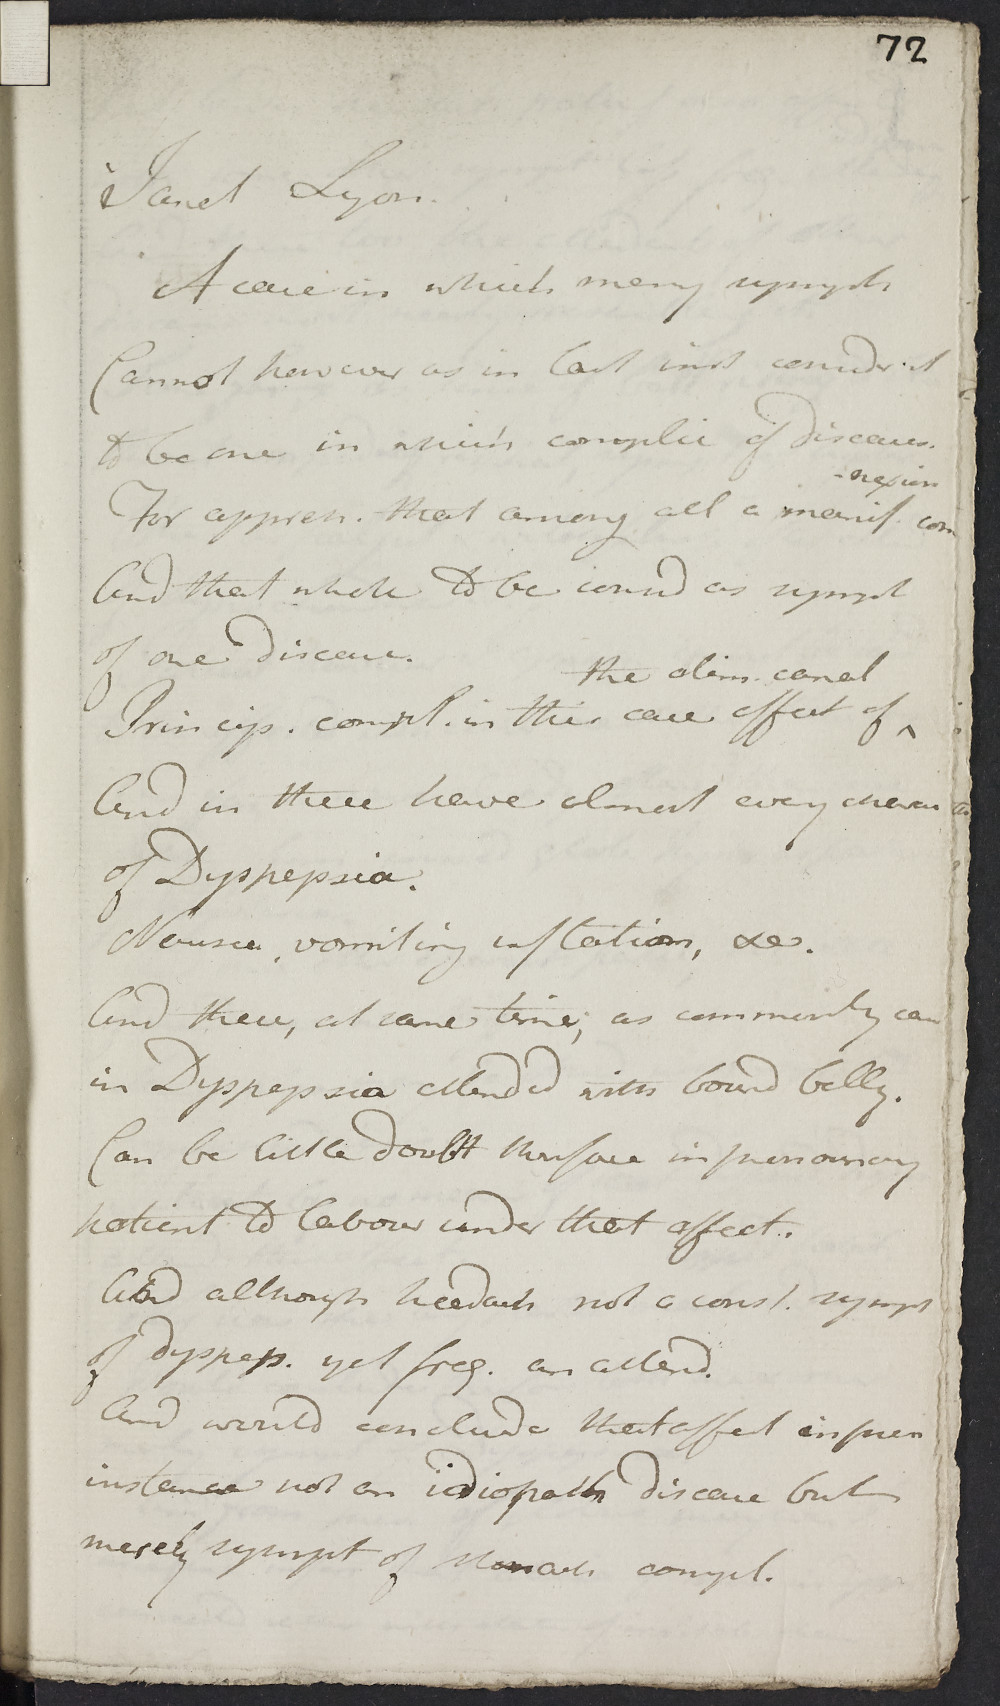 72
Janet Lyon.
A case in which many sympts
Cannot however as in last inst consider it
to be one in which complic of diseases.
-nexion
For appreh. that among all a manif. con
And that whole to be consid as sympt
of one disease.
the alim. canal
Princip. compl. in this case affect of ^
And in these have almost every
of Dyspepsia.
Nausea, vomiting inflation, &c.
And these, at same time, as commonly case
in Dyspepsia attended with bound belly.
Can be little doubt therefore in pronouncing
patient to labour under that affect.
And although headach not a const. sympt
of dyspep. yet freq. an attend.
And would conclude that affect in pres
instance not an idiopath disease but
merely sympt of stomach compl.